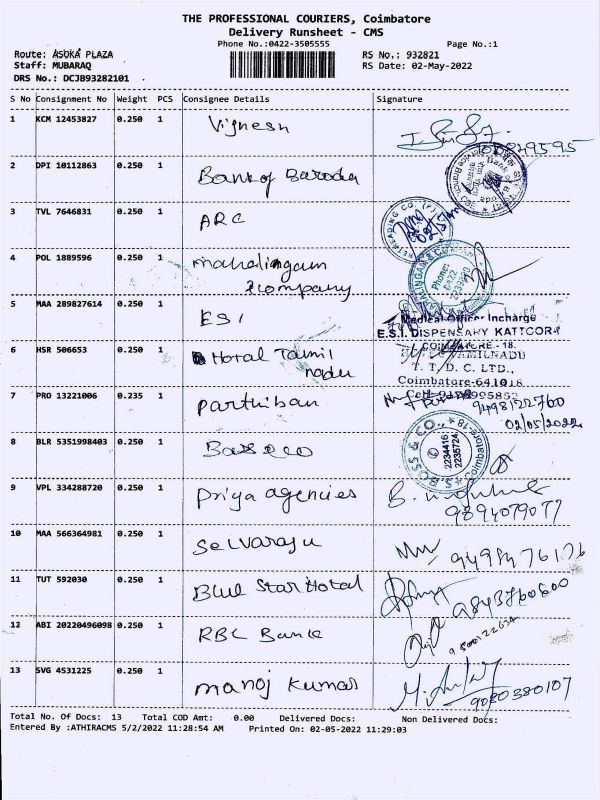 THE PROFESSIONAL COURIERS, Coimbatore
Delivery Runsheet - CMS
Phone No.:0422-3505555 Page No.:1
Route: ASOKA PLAZA RS No.: 932821
Staff: MUBARAQ RS Date: 02-May-2022
DRS No.: DCJB93282101
S No Consignment No Weight PCS Consignee Details Signature
1 KCM 12453827 0.250 1 Vignesh
2 DPI 10112863 0.250 1 Bank of Baroda
3 TVL 7646831 0.250 1 ARC
4 POL 1889596 0.250 1 mahalingam
& company
5 MAA 289827614 0.250 1 ESI
Medical Officer Incharge
E.S.I. DISPENSARY KATTOOR
COIMBATORE - 18.
6 HSR 506653 0.250 1 Hotal Tamil
nadu
TAMILNADU
T. T. D. C. LTD.,
Coimbatore-641018
7 PRO 13221006 0.235 1 Parthiban 9498122760
02/05/2022
8 BLR 5351998403 0.250 1 Bossco
BOSS & CO., Coimbatore-18
2234416
2235724
9 VPL 334288720 0.250 1 Priya agencies
9894079077
10 MAA 566364981 0.250 1 Selvaraju
11 TUT 592030 0.250 1 Blue Star Hotal 9843760600
12 ABI 20220496098 0.250 1 RBL Bank 9500122634
13 SVG 4531225 0.250 1 manoj kumar
9080380107
Total No. Of Docs: 13 Total COD Amt: 0.00 Delivered Docs: Non Delivered Docs:
Entered By :ATHIRACMS 5/2/2022 11:28:54 AM Printed On: 02-05-2022 11:29:03